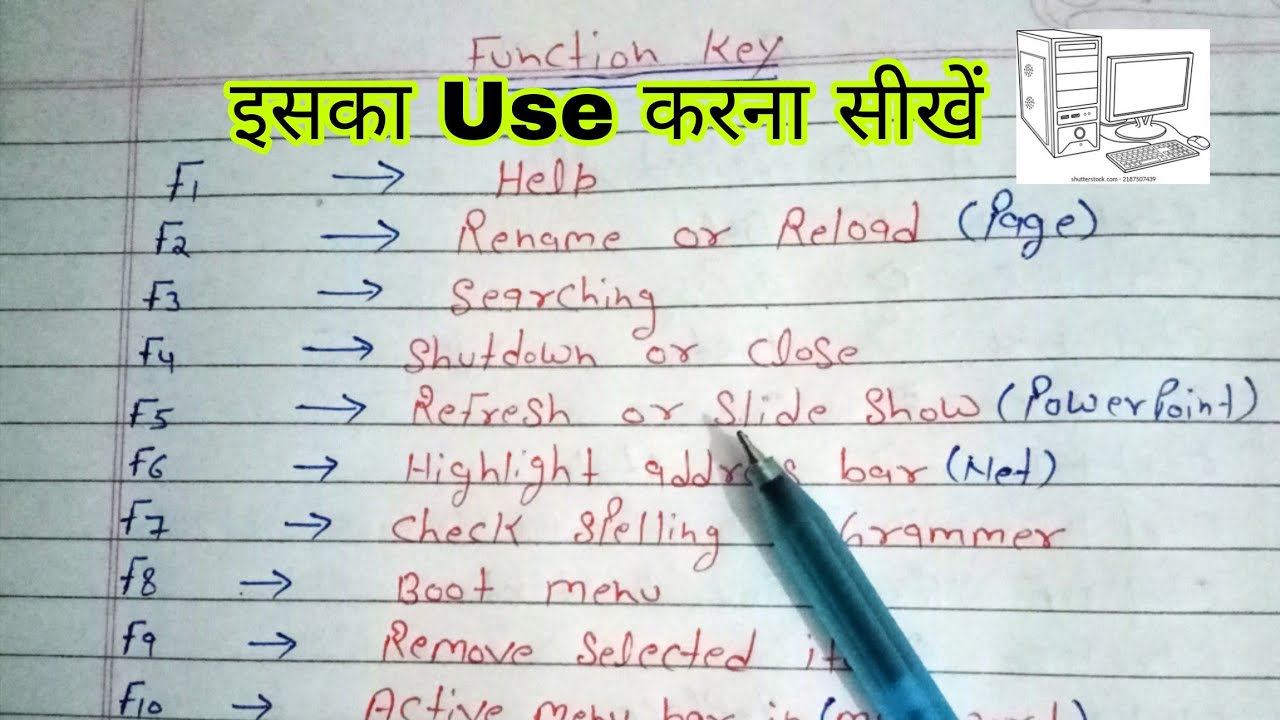 Function Key
इसका Use करना सीखें
shutterstock.com · 2187507439
F1 → Help
F2 → Rename or Reload (Page)
F3 → Searching
F4 → Shutdown or Close
F5 → Refresh or Slide Show (PowerPoint)
F6 → Highlight address bar (Net)
F7 → Check Spelling Grammer
F8 → Boot menu
F9 → Remove Selected
F10 → Active menu bar in